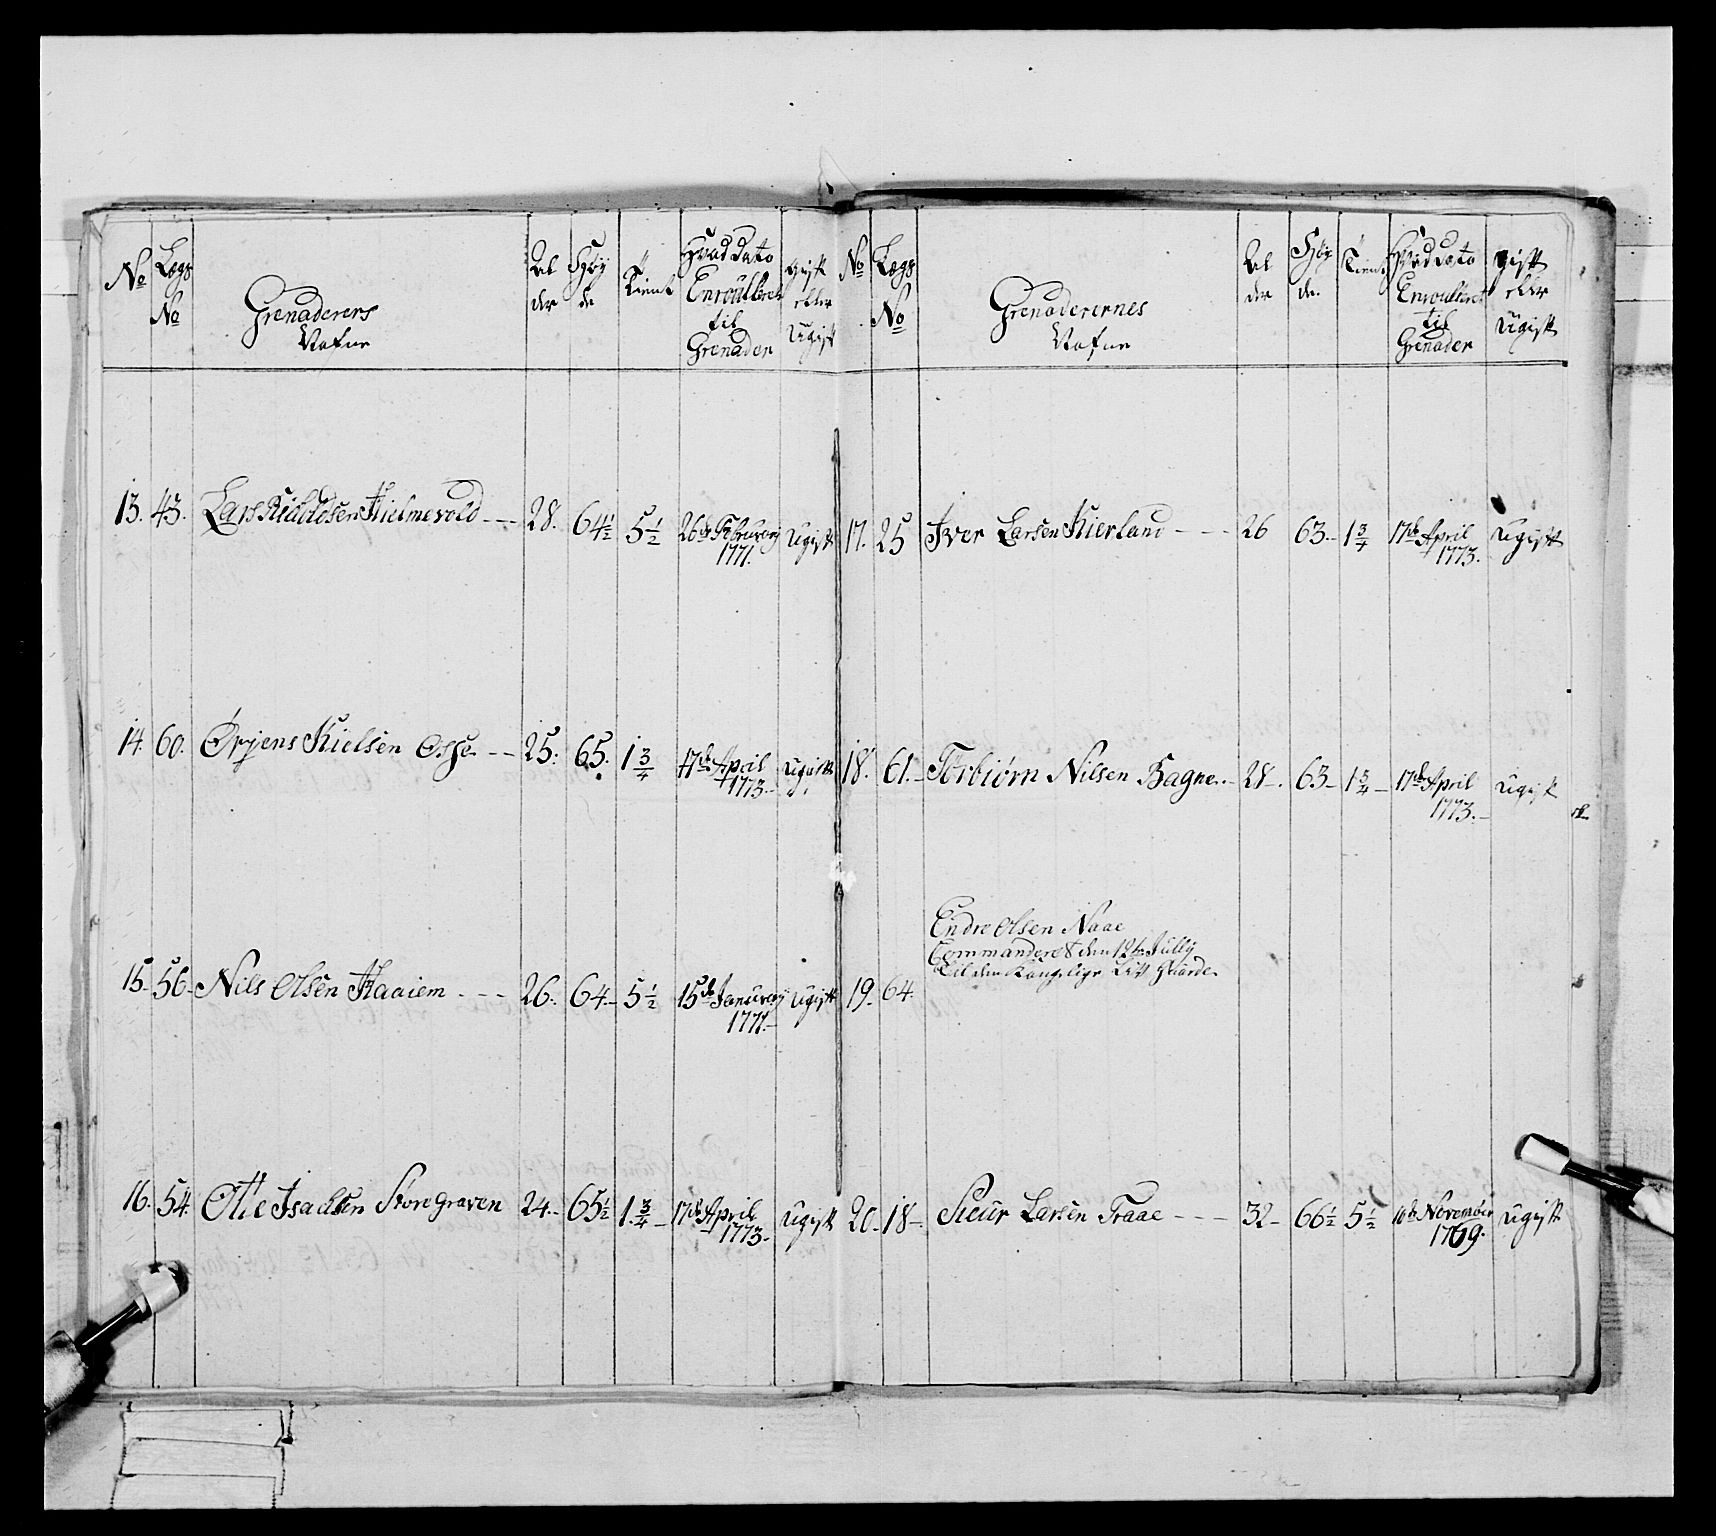 No
Lægs No
Grenaderers Nafne
Alder
Høyde
Tient
Hvad Dato Enroulleret til Grenader
Gift eller Ugift
13. 43. Lars Hielmevold --- 28. 64½ 5½ 26de Februarj 1771. Ugift
14. 60. Ørjens Kielsen Osse -- 25. 65. 1¾ 17de April 1773. Ugift
15. 56. Nils Olsen Haaiem --- 26. 64. 5½ 15de Januarj 1771. Ugift
16. 54. Olle Isachsen Storegraven 24. 65½ 1¾ 17de April 1773. Ugift
No
Lægs No
Grenaderernes Nafne
Alder
Høyde
Tient
Hvad Dato Enroulleret til Grenader
Gift eller Ugift
17. 25 Iver Larsen Kierland --- 26 63. 1¾ 17de April 1773. Ugift
18. 61. Torbiørn Nilsen Bagne. 28. 63 1¾ 17de April 1773. Ugift
Endre Olsen Naae
Commanderet den 12te Julij
19. 64. til den Kongelige Liv Guarde
20. 18 Siur Larsen Traae --- 32 66½ 5½ 10de November 1769. Ugift